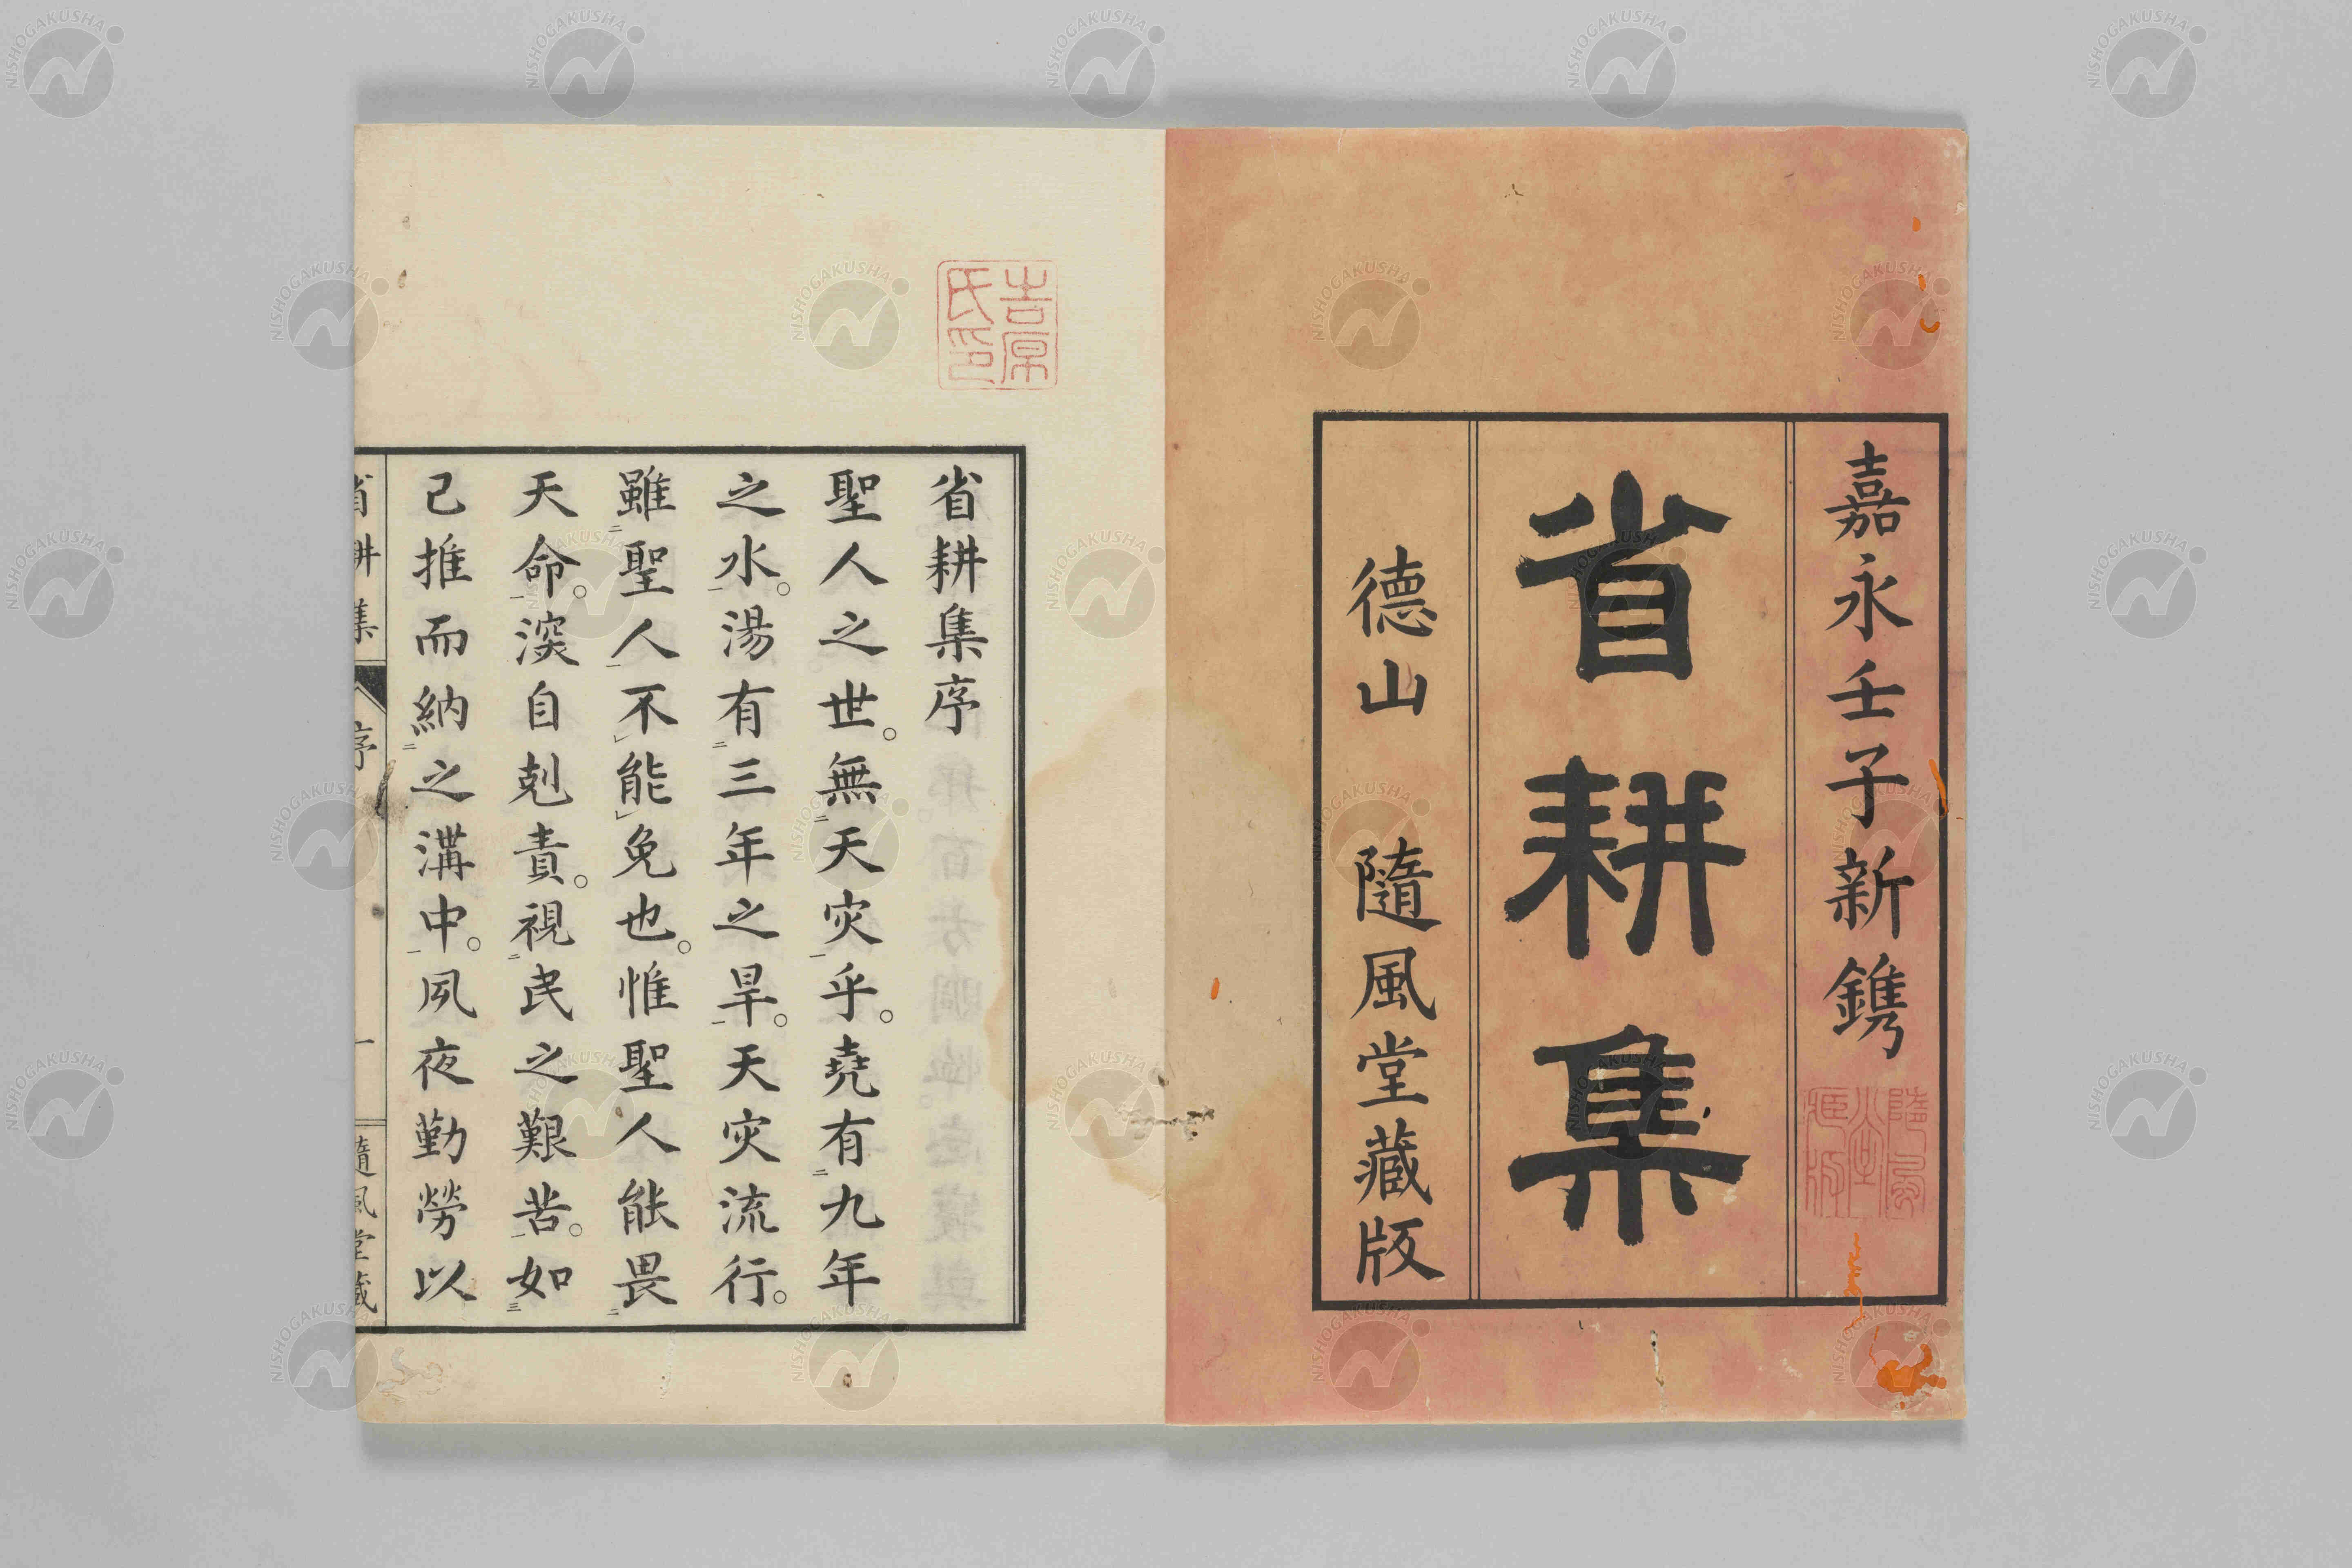 嘉永壬子新鐫
省耕集
德山 隨風堂藏版
省耕集序
聖人之世。無天灾乎。堯有九年
之水。湯有三年之旱。天灾流行。
雖聖人不能免也。惟聖人能畏
天命。深自剋責。視民之艱苦。如
己推而納之溝中。夙夜勤勞以
省耕集 序 一 隨風堂藏
吉原氏印
NISHOGAKUSHA